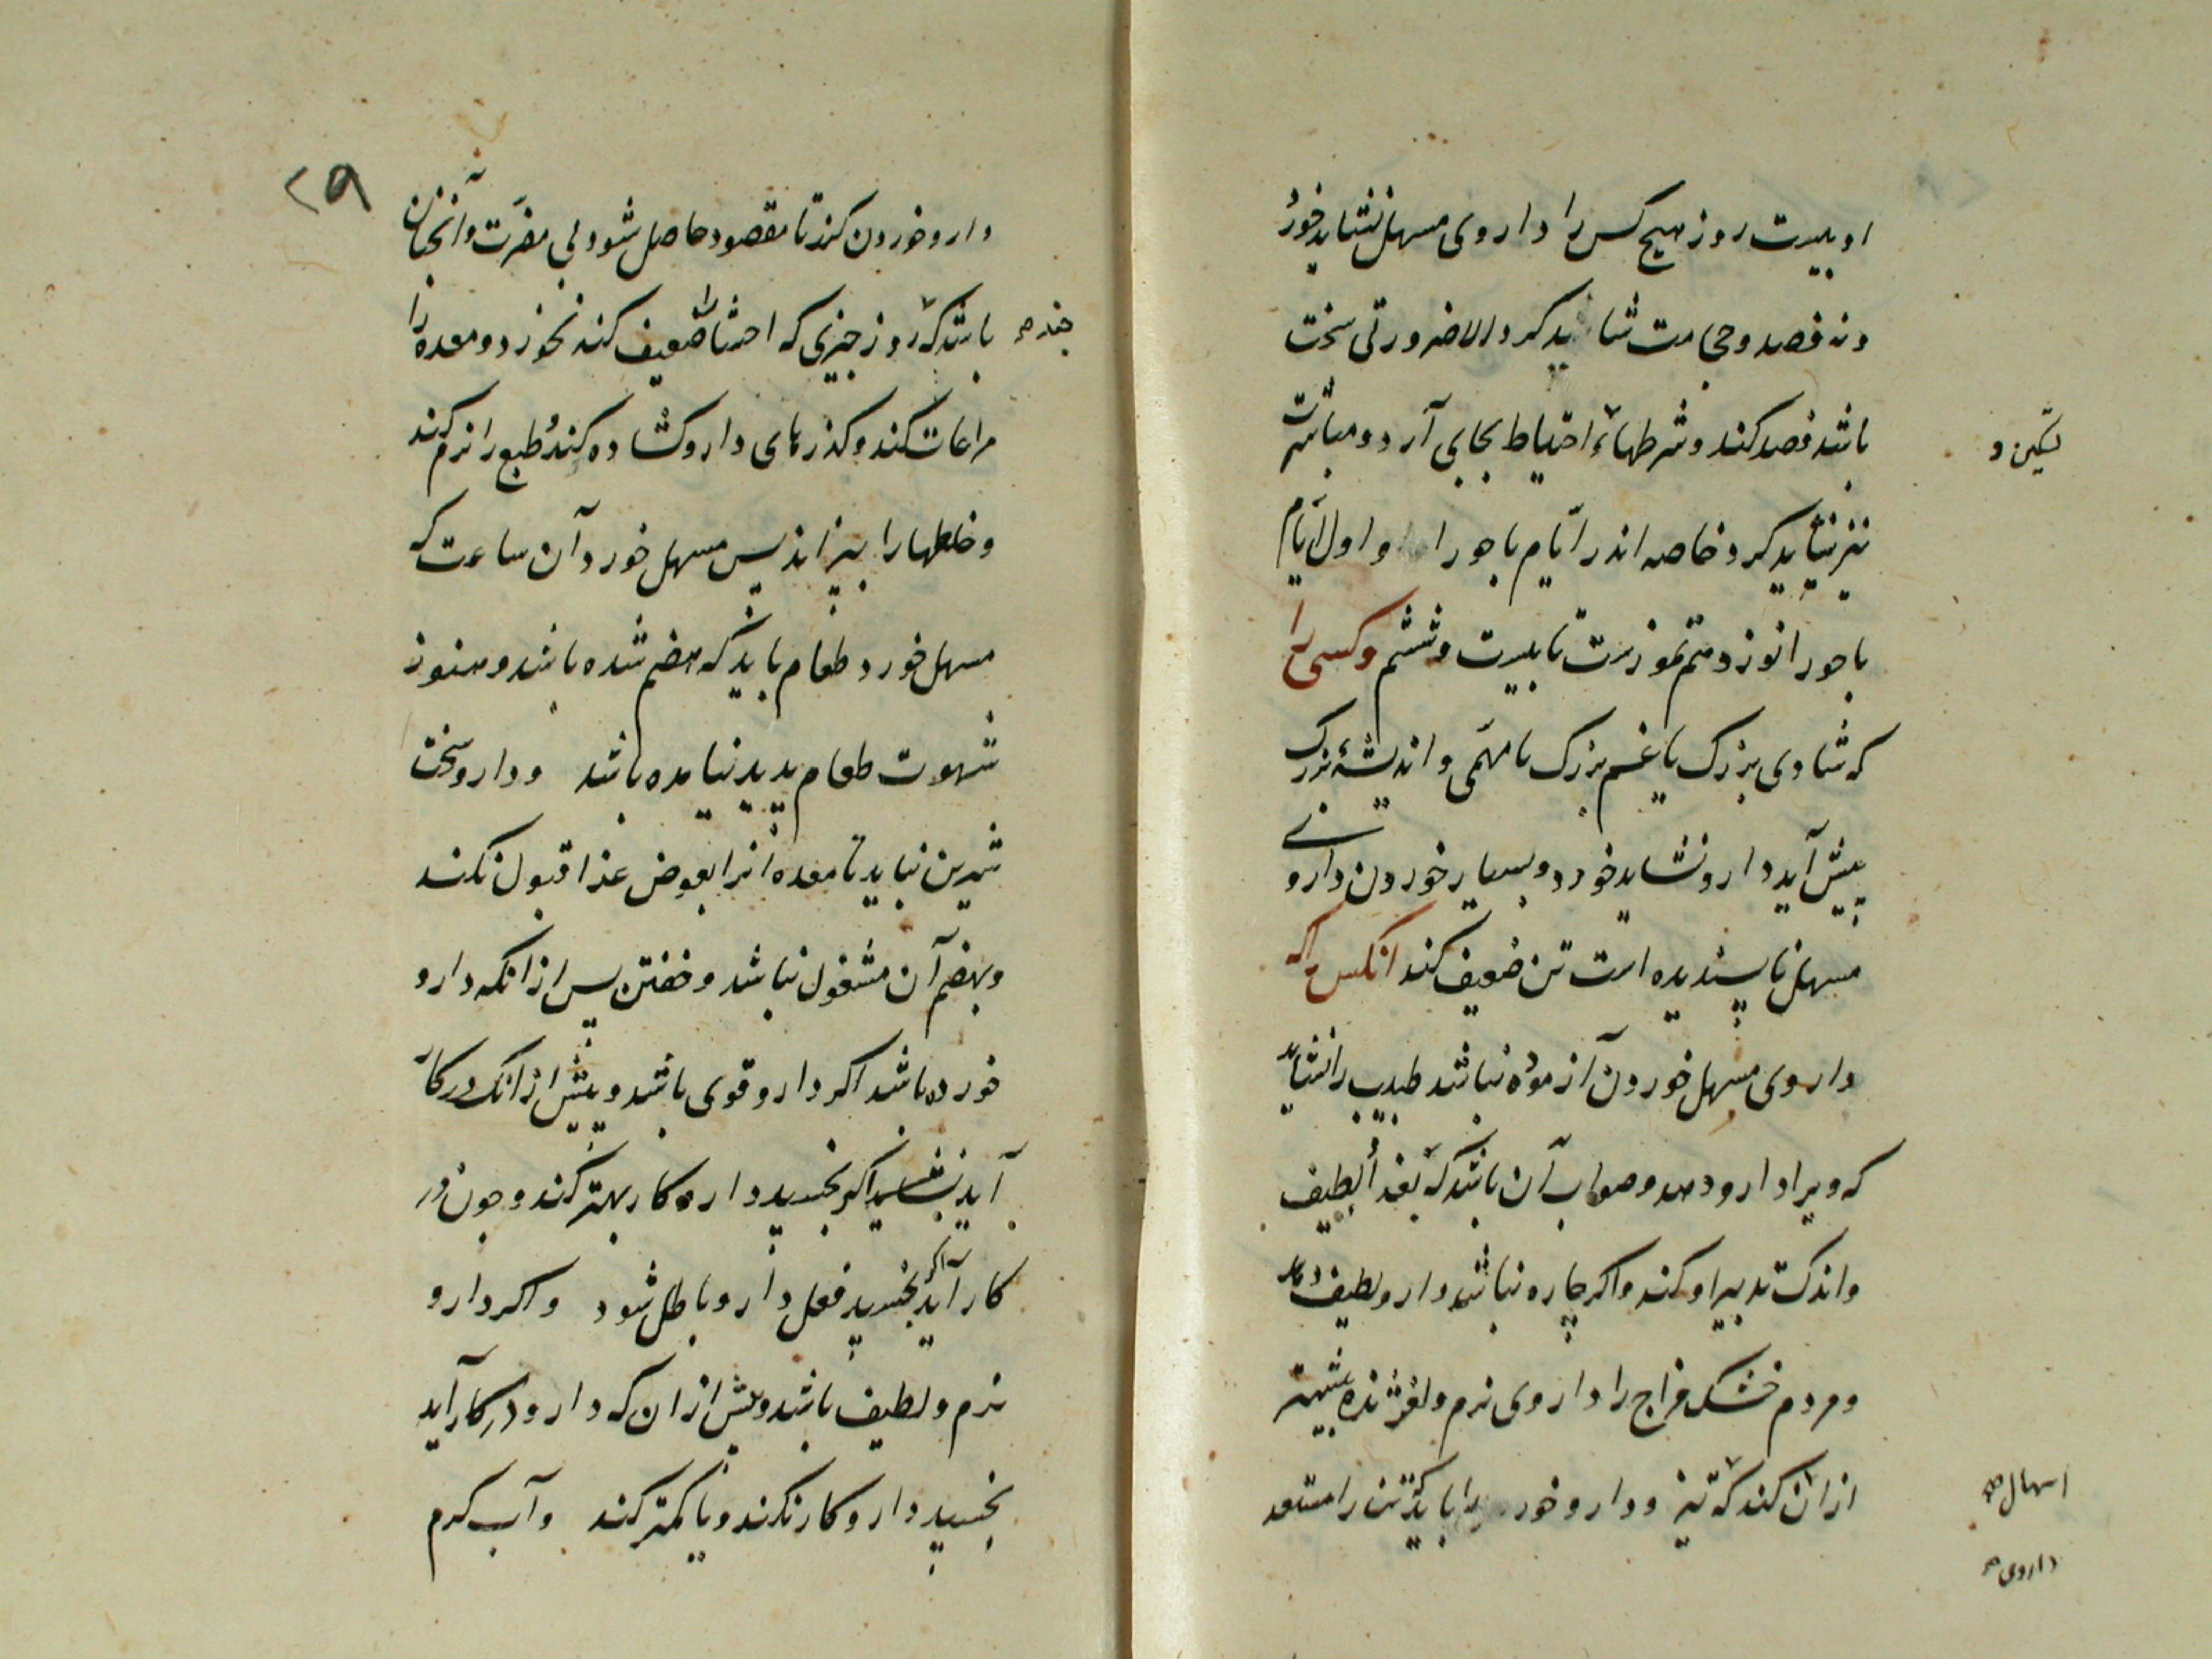 او بیست روز هیچ کس را داروی مسهل نشاید خورد
و نه فصد و حجامت شاید کرد الا ضرورتی سخت
باشد فصد کند و شرطهاء احتیاط بجای آرد و مباشرت
نیز نشاید کرد خاصه اندر ایام باحورا و اول ایام
باحورا نوزدهم تموزست تا بیست و ششم و کسی را
که شادی بزرک یا غم بزرک یا مهمی و اندیشهٔ بزرک
پیش آید دارو نشاید خورد و بسیار خوردن داروی
مسهل ناپسندیده است تن ضعیف کند انکس را که
داروی مسهل خوردن آزموده نباشد طبیب را نشاید
که ویرا دارو دهد و صواب آن باشد که بغذا لطیف
واندک تدبیر او کند و اکر چاره نباشد دارو لطیف دهد
و مردم خشک مزاج را داروی نرم و لغزنده بیشتر
از ان کند که تیز و دارو خور را باید که تن را مستعد
تسکین و
اسهال
داروی
۲۹
دارو خوردن کند تا مقصود حاصل شود بی مضرت و آنچنان
باشد که روز چیزی که احشا را ضعیف کند نخورد و معده را
چند
مراعات کند و کذرهای دارو کشاده کند و طبع را نرم کند
و خلطها را بپزاند پس مسهل خورد آن ساعت که
مسهل خورد طعام باید که هضم شده باشد و هنوز
شهوت طعام پدید نیامده باشد و دارو سخت
شیرین نباید تا معده آنرا بعوض غذا قبول نکند
و بهضم آن مشغول نباشد و خفتن پس از انکه دارو
خورده باشد اکر دارو قوی باشد و پیش از انک در کار
آید اکر بخسپد دارو کار بهتر کند و چون در
کار آید اکر بخسپد فعل دارو باطل شود و اکر دارو
نرم و لطیف باشد و پیش از ان که دارو در کار آید
بخسپد دارو کار نکند و یا کمتر کند و آب کرم